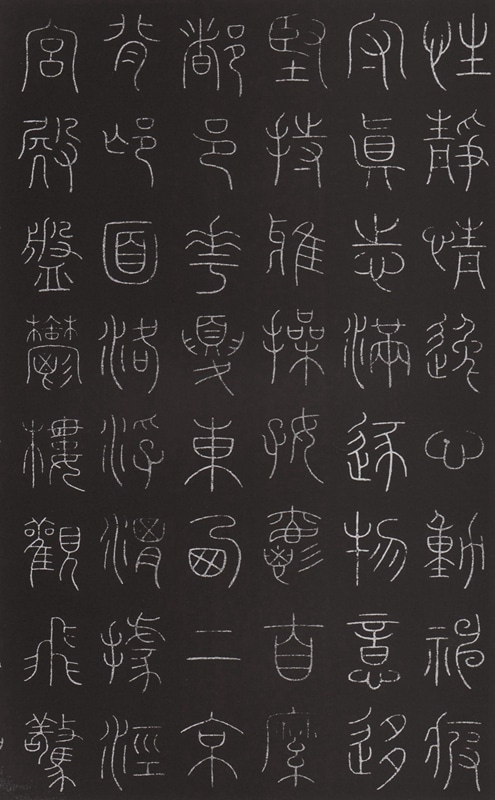 性靜情逸心動神疲
守眞志滿逐物意迻
堅持雅操好爵自縻
都邑華夏東西二京
背邙面洛浮渭據涇
宮殿盤鬱樓觀飛驚